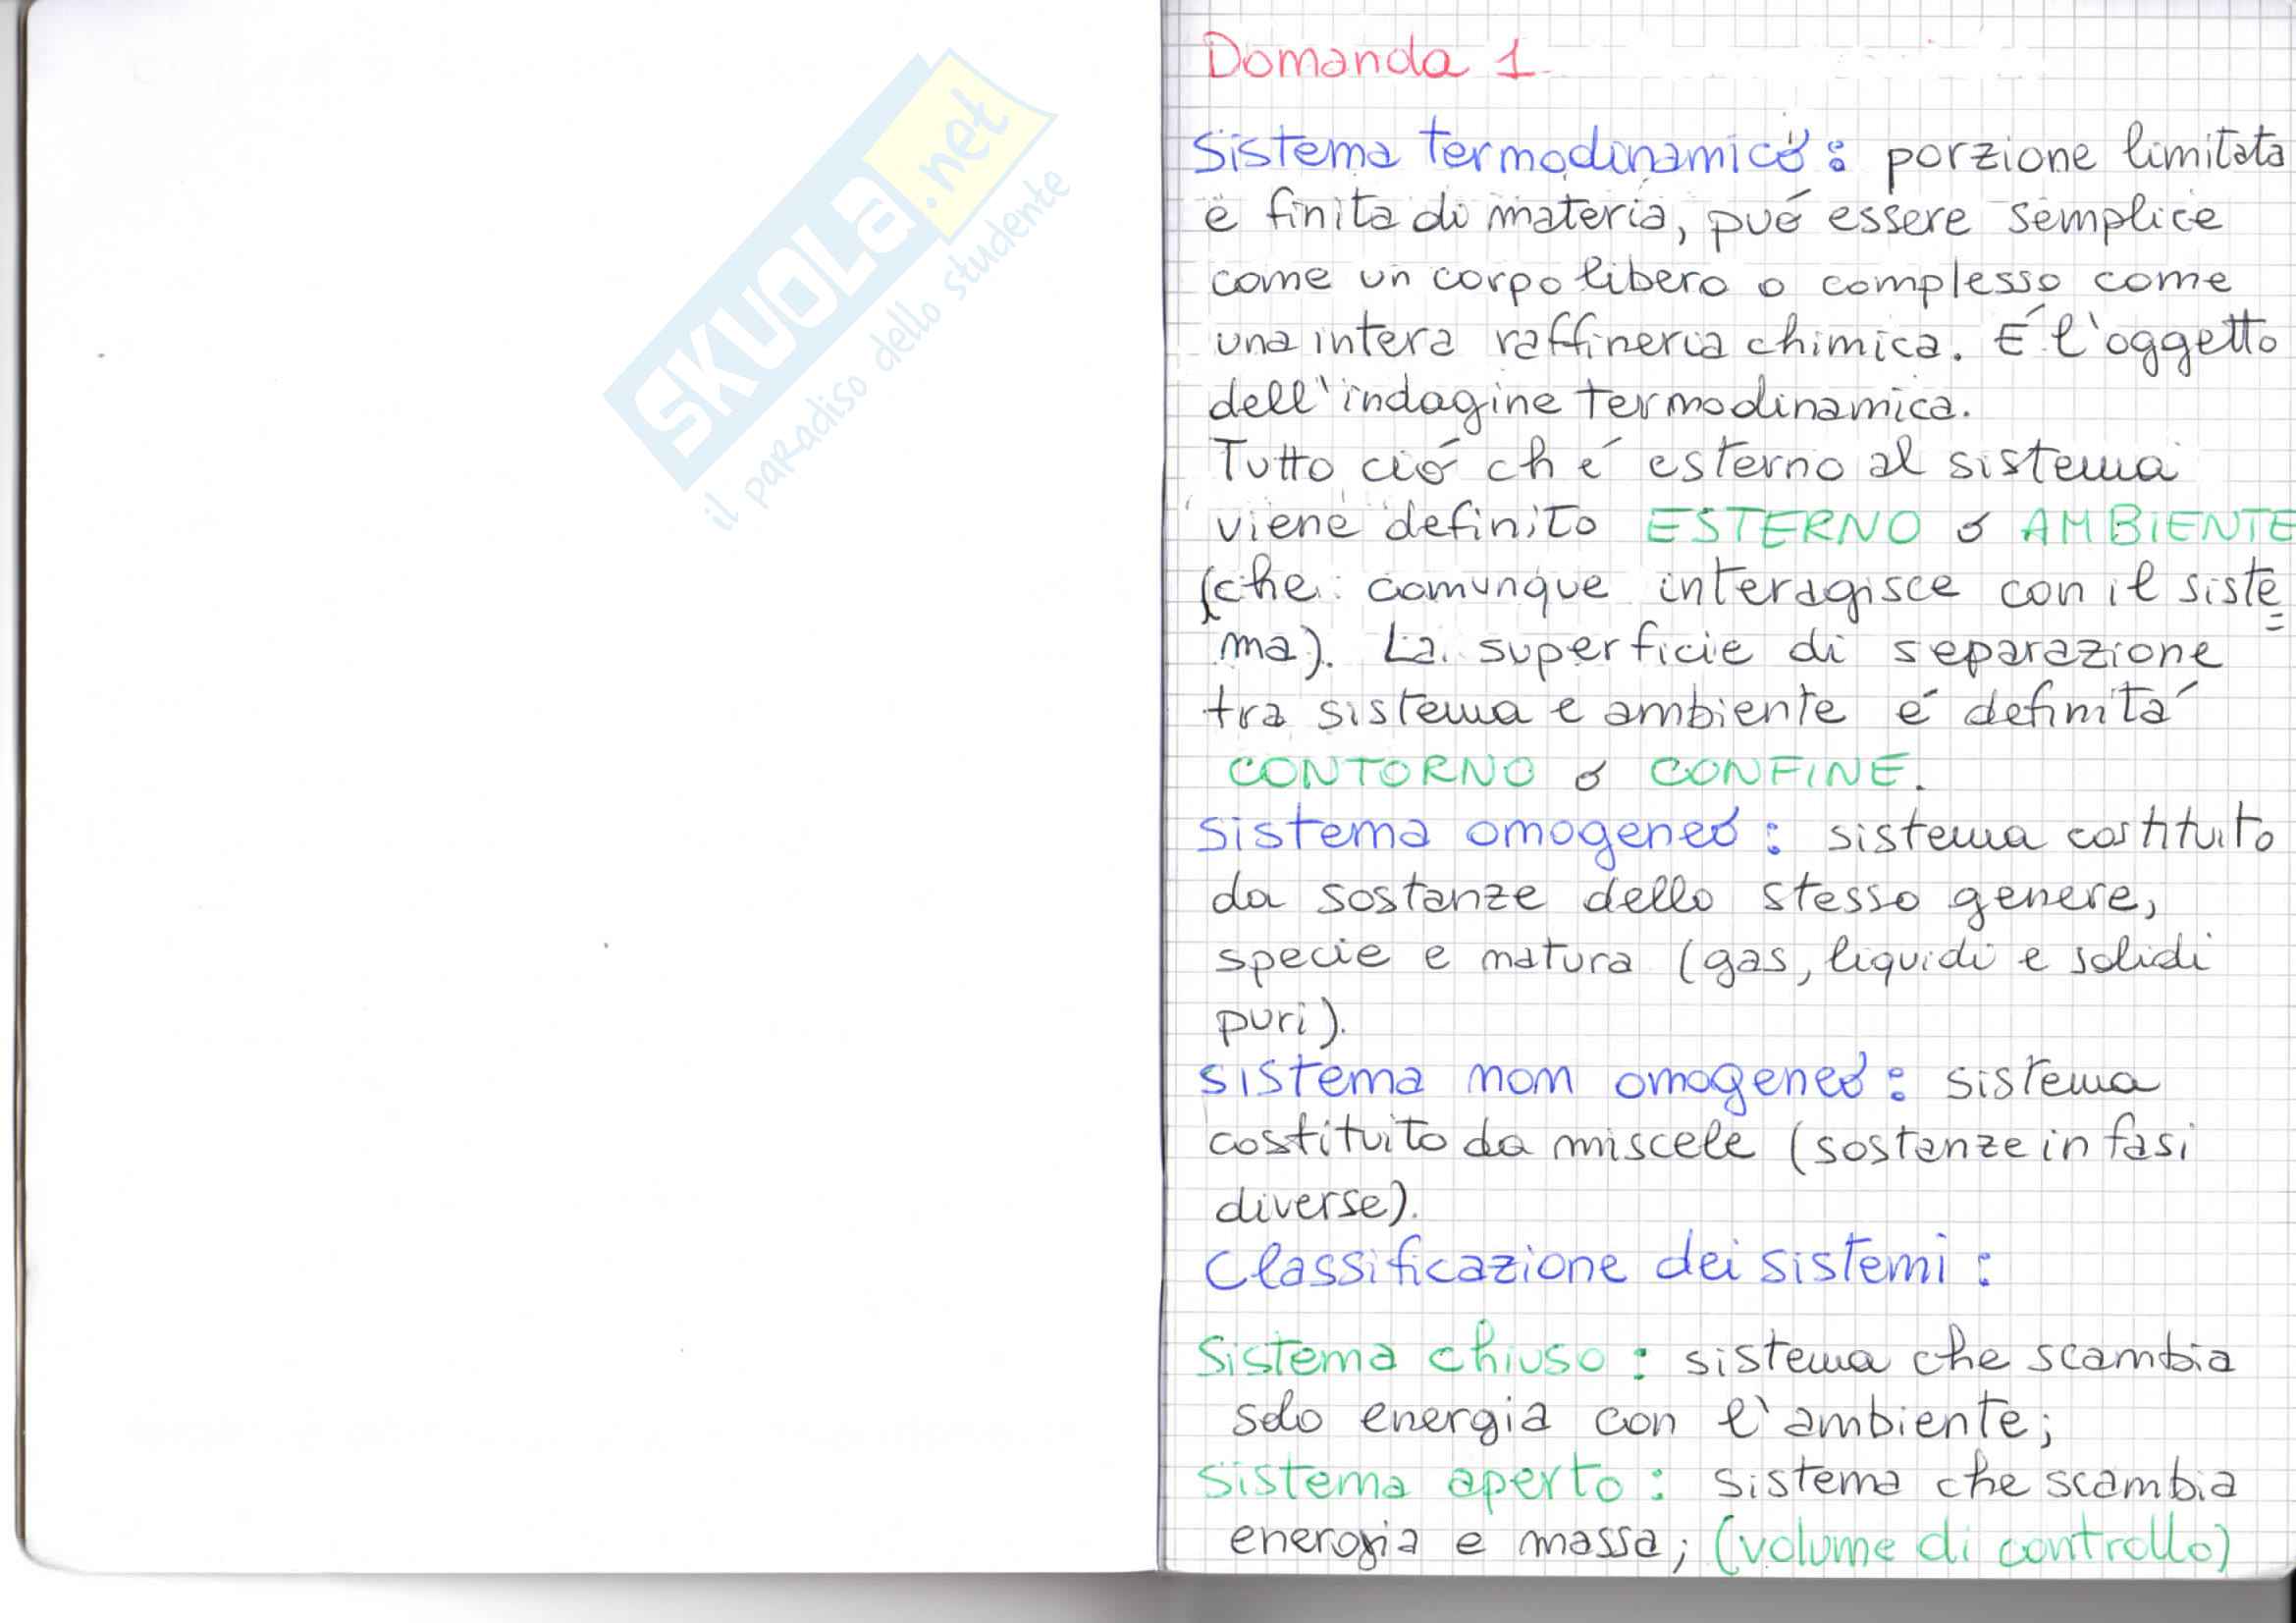 SKUOLA.net
il paradiso dello studente
Domanda 1
Sistema termodinamico: porzione limitata
e finita di materia, pué essere semplice
come un corpo libero o complesso come
una intera raffineria chimica. É l'oggetto
dell'indagine termodinamica.
Tutto ció ch é esterno al sistema
viene definito ESTERNO o AMBIENTE
(che comunque interagisce con il siste=
ma). La superficie di separazione
tra sistema e ambiente é definita
CONTORNO o CONFINE.
Sistema omogeneo: sistema costituito
da sostanze dello stesso genere,
specie e natura (gas, liquidi e solidi
puri).
Sistema non omogeneo: sistema
costituito da miscele (sostanze in fasi
diverse).
Classificazione dei sistemi:
Sistema chiuso: sistema che scambia
solo energia con l'ambiente;
Sistema aperto: sistema che scambia
energia e massa; (volume di controllo)